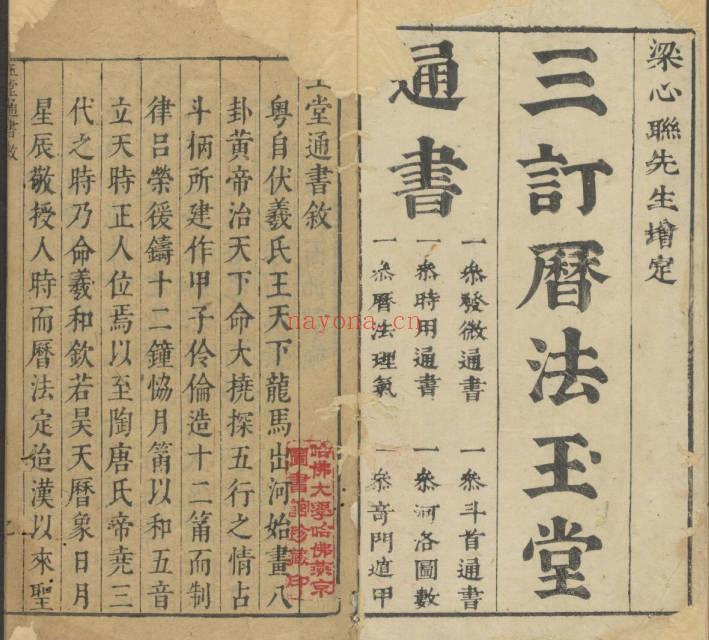 梁心聯先生增定
三訂曆法玉堂
通書
一叅發微通書
一叅斗首通書
一叅時用通書
一叅河洛圖數
一叅曆法理氣
一叅奇門遁甲
堂通書敘
粵自伏羲氏王天下龍馬出河始畫八
卦黃帝治天下命大撓探五行之情占
斗柄所建作甲子伶倫造十二筩而制
律呂榮徬鑄十二鐘恊月筩以和五音
立天時正人位焉以至陶唐氏帝堯三
代之時乃命羲和欽若昊天曆象日月
星辰敬授人時而曆法定迨漢以來聖
堂通書敘
哈佛大學哈佛燕京
圖書館珍藏印
nayona.cn